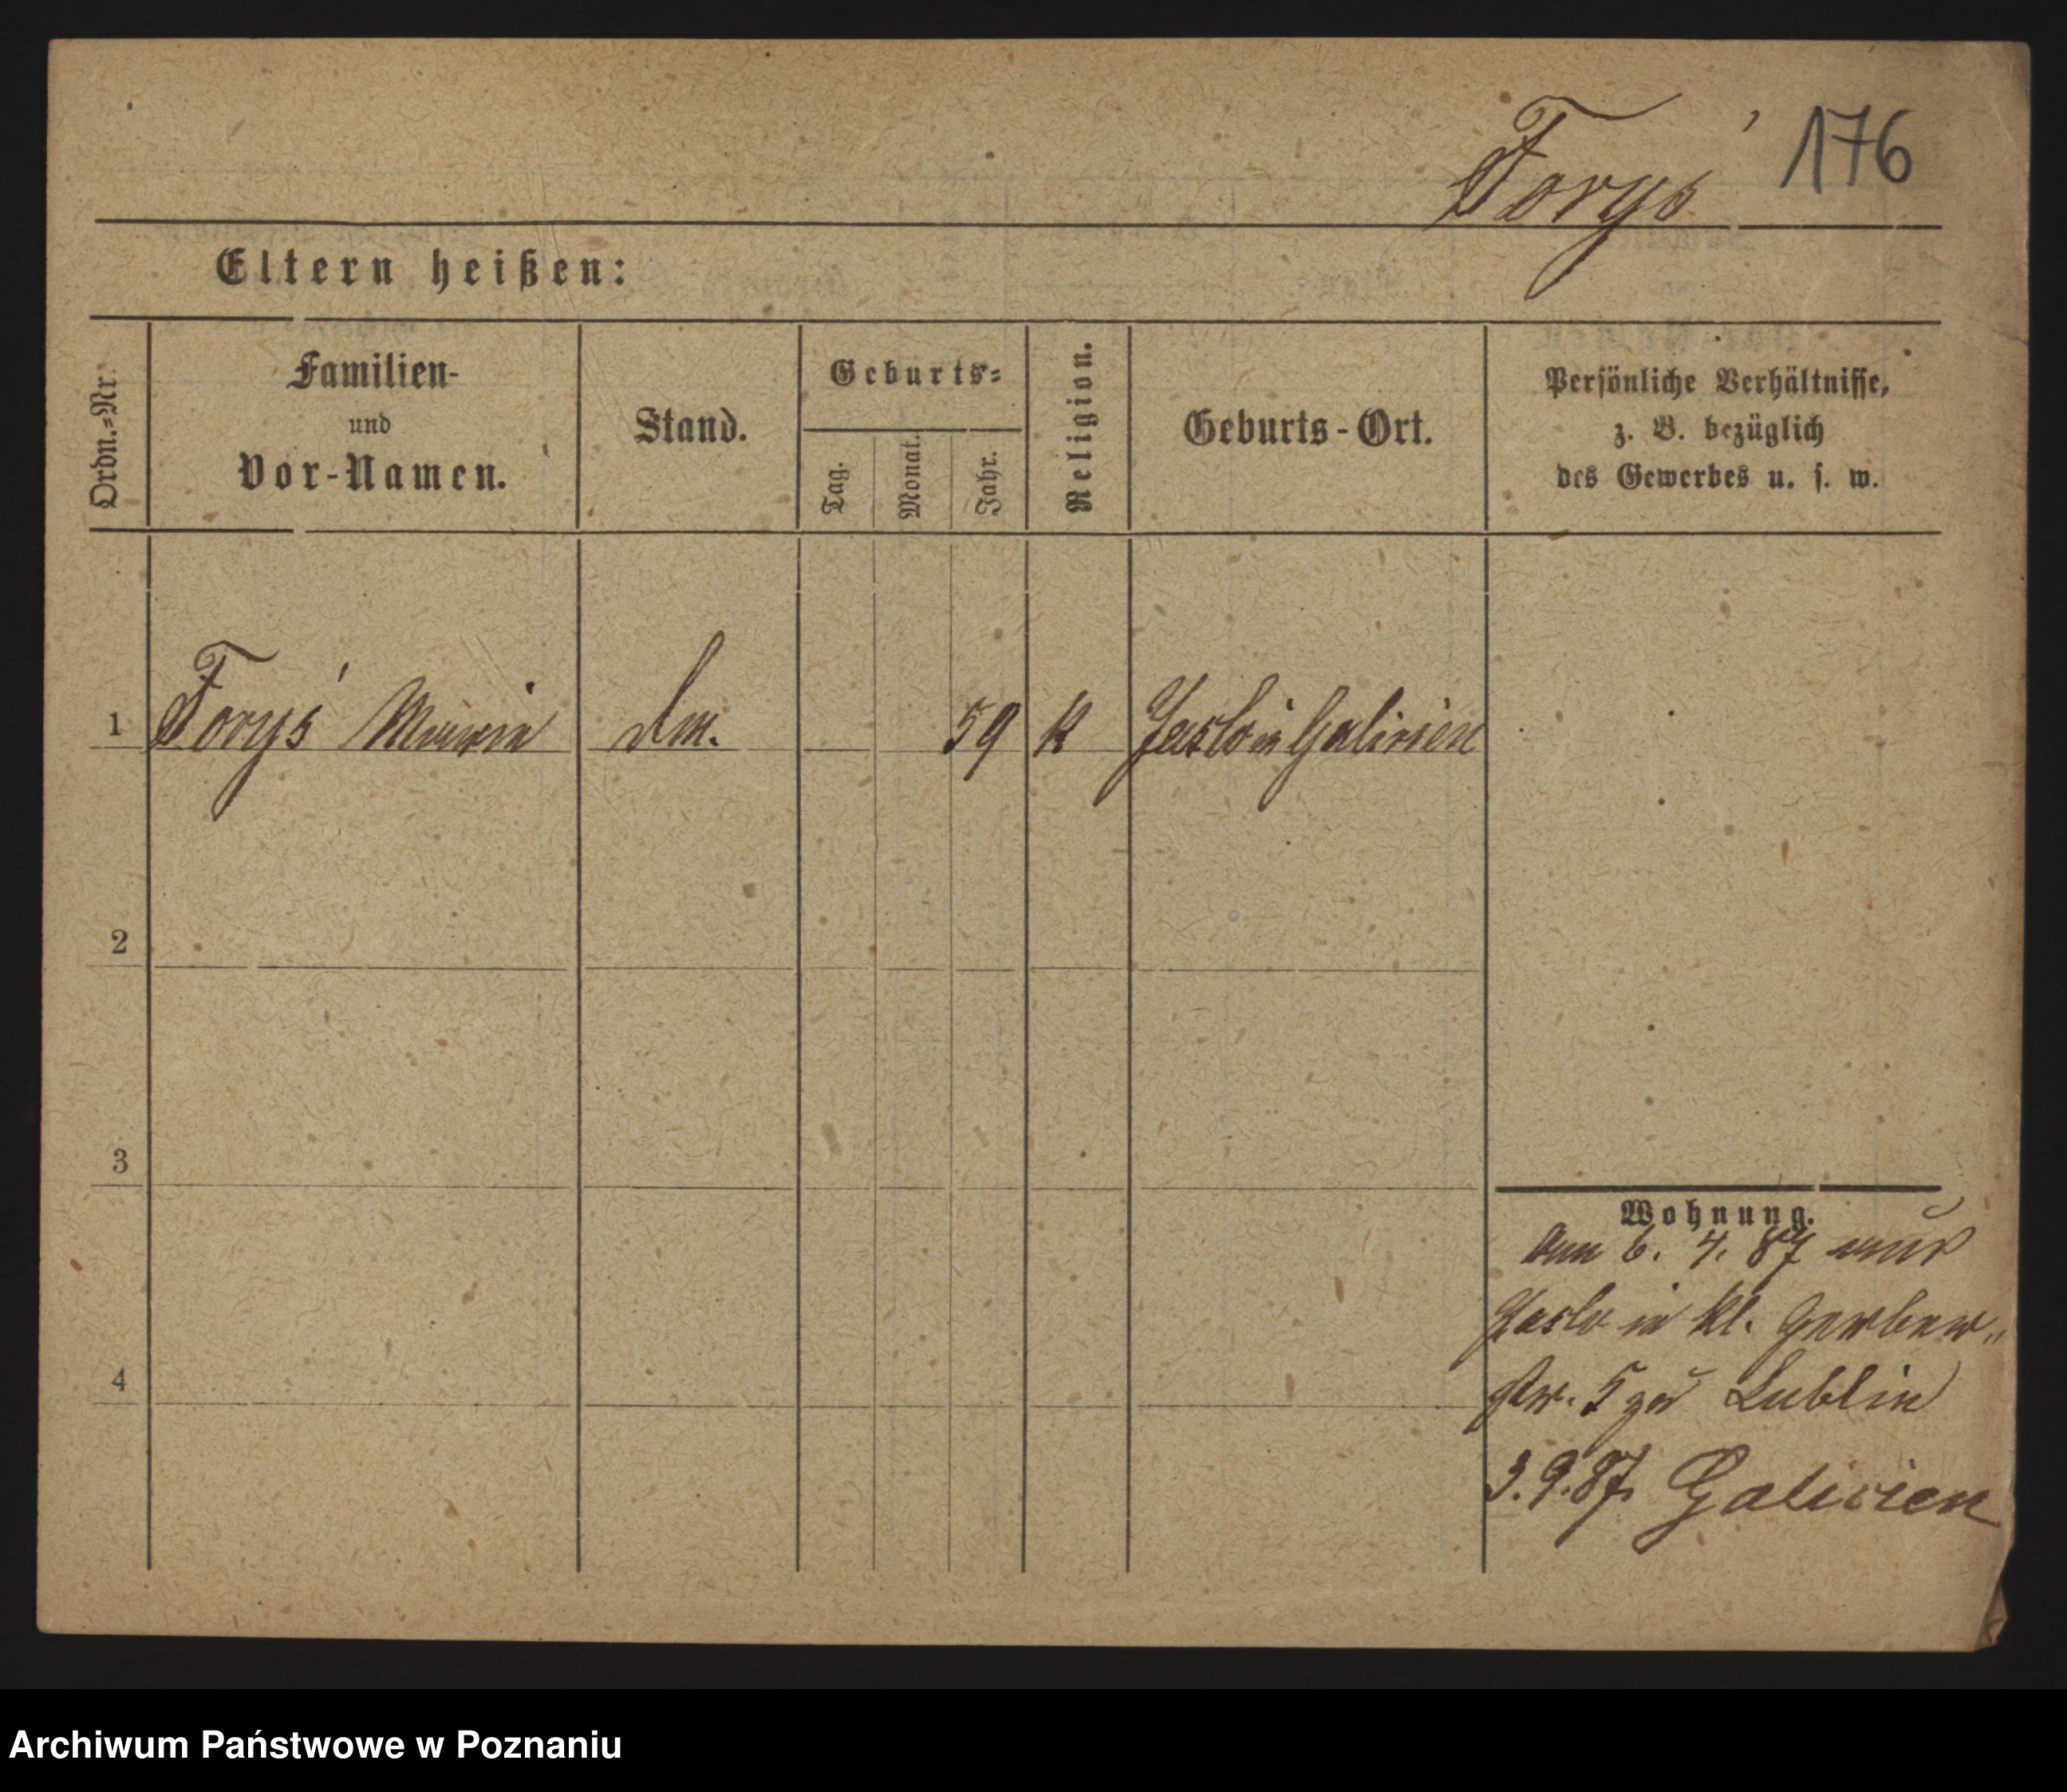 Foryś 176
Eltern heißen:
Ordn.=Nr.
Familien-
und
Vor-Namen.
Stand.
Geburts=
Tag.
Monat.
Jahr.
Religion.
Geburts-Ort.
Persönliche Verhältnisse,
z. B. bezüglich
des Gewerbes u. s. w.
1 Foryś Maria 59 k Jaslo in Galicien
2
3
4
Wohnung.
Am 6. 4. 87 aus
Jaslo in kl. Gerber„
str. 5 zu Lublin
3.9.87. Galicien
Archiwum Państwowe w Poznaniu